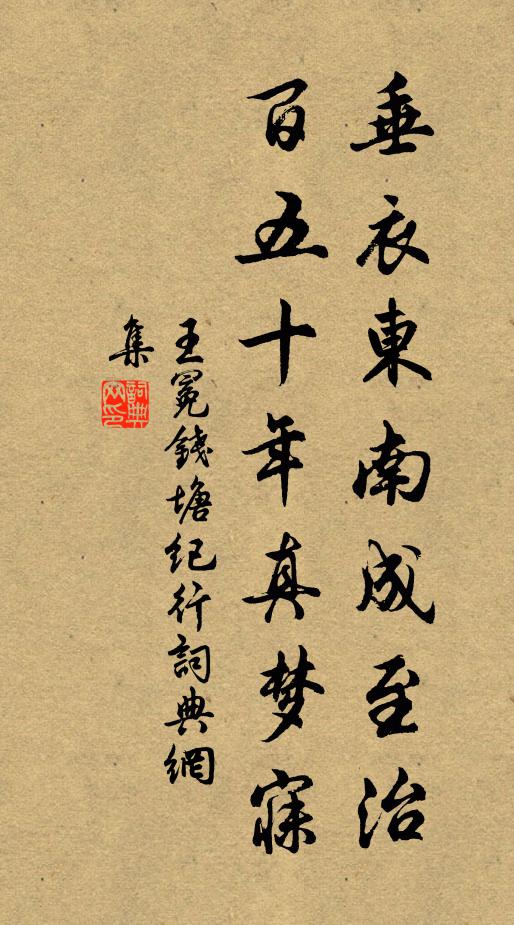 垂衣東南成至治
百五十年真梦寐
王冕錢塘纪行詞典網
集
詞典
网印